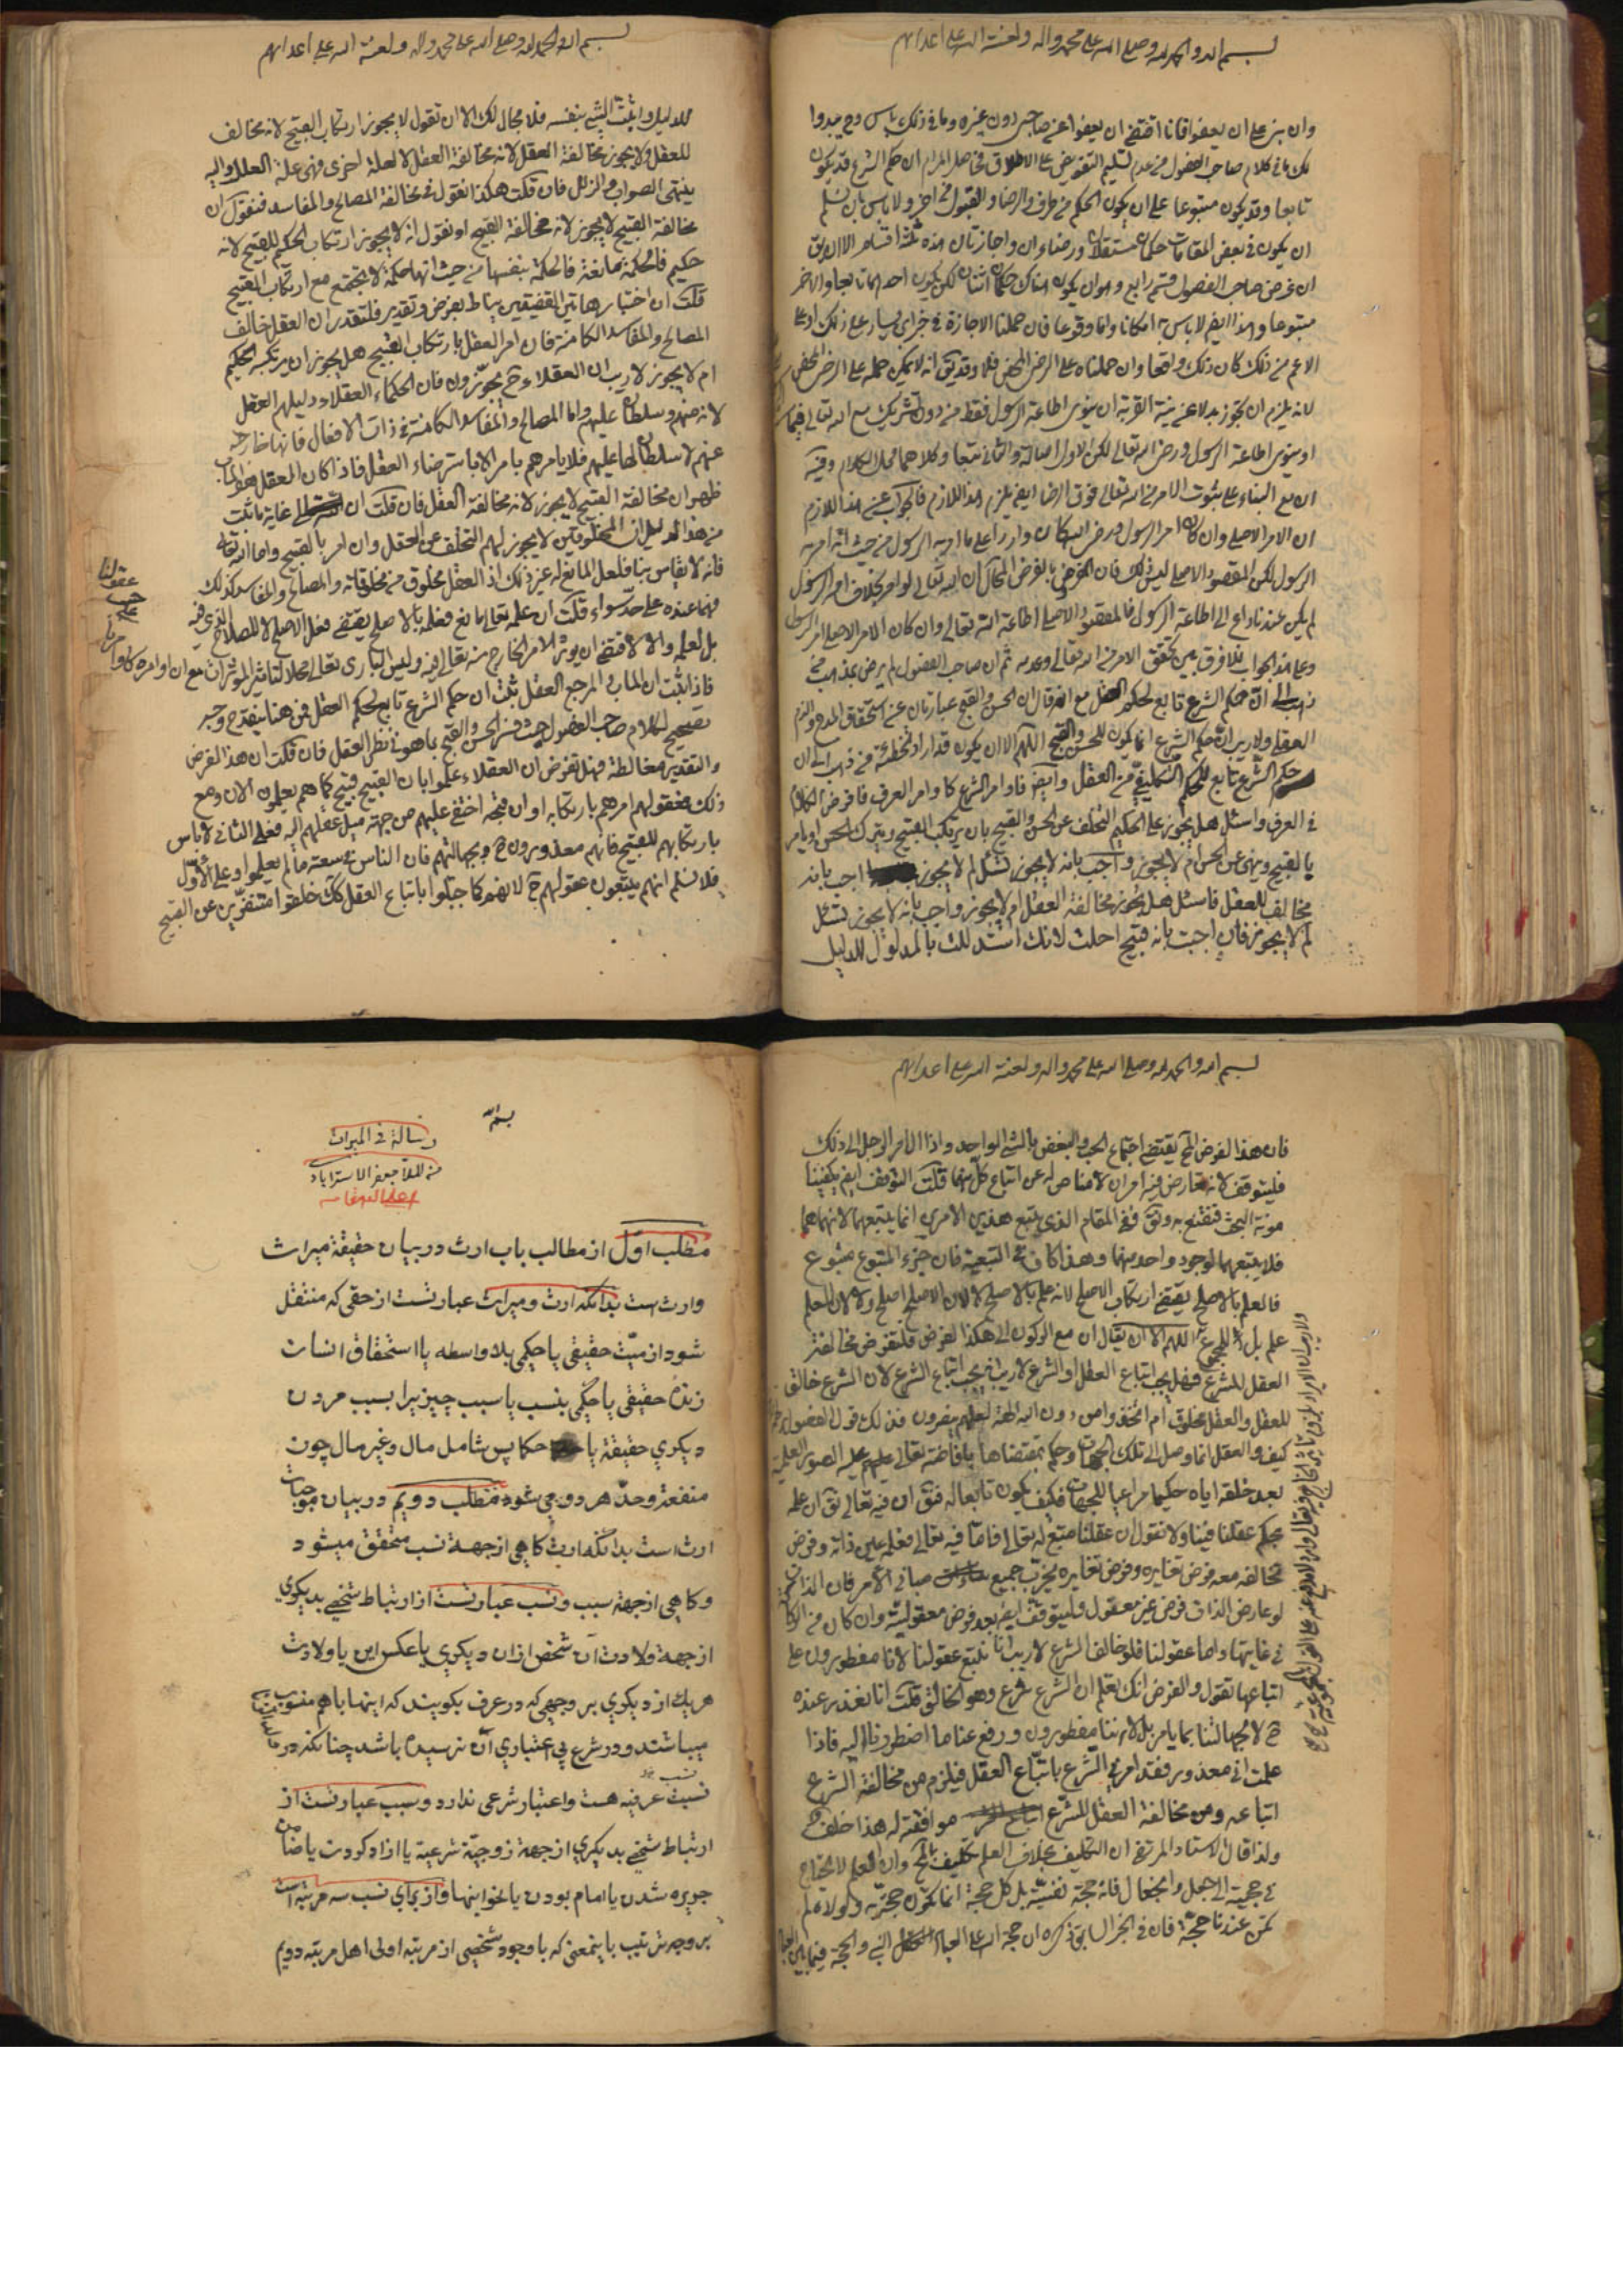 بسم الله والحمد لله وصلى الله على محمد واله ولعنة الله على اعدائهم
وان بنى على ان يعفوا فانا اقتفى ان يعفوا عن صاحبى دون غيره وما فى ذلك باس وح يبدوا
لك ما فى كلام صاحب الفصول من عدم تسليم التفويض على الاطلاق فحاصل المرام ان حكم الشرع قد يكون
تابعا وقد يكون متبوعا على ان يكون الحكم من طرف والرضا والقبول من اخر ولا باس بان نسلم
ان يكون فى بعض المقامات حكمان مستقلان ورضاءان واجازتان هذه ثلثة اقسام الا ان يق
ان غرض صاحب الفصول قسم رابع وهو ان يكون هناك حكمان اثنان لكن يكون احدهما تابعا والاخر
متبوعا وهذا ايضا لا باس به امكانا واما وقوعا فان حملنا الاجازة فى خبر
الاعم من ذلك كان ذلك واقعا وان حملناه على الرضى المحض فلا وقد يق انه لا يمكن حمله على الرضى المحض
لانه يلزم ان نجوز بدلا عن نية القربة ان ينوى اطاعة الرسول فقط من دون تشريك مع الله تعالى
او ينوى اطاعة الرسول ورضى الله تعالى لكن الاول اصالة والثانى تبعا وكلاهما محل الكلام وفيه
ان مع البناء على ثبوت الامر من الله تعالى فوق الرضا ايضا يلزم هذا اللازم فالجواب عن هذا اللازم
ان الامر الاصلى وان كان امر الرسول ورضى الله كان واردا على ما امر به الرسول من حيث انه امر به
الرسول لكن المقصود الاصلى ليس ذلك فان الغرض بالفرض المحال ان الله تعالى لو امر بخلاف امر الرسول
لم يكن عندنا داع الى اطاعة الرسول فالمقصود الاصلى اطاعة الله تعالى وان كان الامر الاصلى امر الرسول
وعلى هذا الجواب فلا فرق بين تحقق الامر من الله تعالى وعدمه ثم ان صاحب الفصول لم يرض بمذهب من
ذهب الى ان حكم الشرع تابع لحكم العقل مع انه قال ان الحسن والقبح عبارتان عن استحقاق المدح والذم
العقلى ولا ريب ان حكم الشرع انما يكون للحسن والقبح اللهم الا ان يكون قد اراد تخطئة من ذهب الى ان
حكم الشرع تابع للحكم التكليفى من العقل وايضا فاوامر الشرع كاوامر العرف فافرض الكلام
فى العرف واسئل هل يجوز على الحكيم التخلف عن الحسن والقبح بان يرتكب القبيح ويترك الحسن او يامر
بالقبيح وينهى عن الحسن ام لا يجوز واجب بانه لا يجوز نسئل لم لا يجوز اجب بانه
مخالف للعقل فاسئل هل يجوز مخالفة العقل ام لا يجوز واجب بانه لا يجوز نسئل
لم لا يجوز فان اجبت بانه قبيح احلت لانك استدللت بالمدلول للدليل
بسم الله والحمد لله وصلى الله على محمد واله ولعنة الله على اعدائهم
للدليل واثبت الشئ بنفسه فلا مجال لك الا ان تقول لا يجوز ارتكاب القبيح لانه مخالف
للعقل ولا يجوز مخالفة العقل لانه مخالفة العقل لا لعلة اخرى فهى علة العلل واليه
ينتهى الصواب والزلل فان قلت هكذا نقول فى مخالفة المصالح والمفاسد فنقول ان
مخالفة القبيح لا يجوز لانه مخالفة القبيح او نقول انه لا يجوز ارتكاب الحكيم للقبيح لانه
حكيم فالحكمة مانعة فالحكمة بنفسها من حيث انها حكمة لا يجتمع مع ارتكاب القبيح
قلت ان اختبار هاتين القضيتين يناط بفرض وتقدير فلنقدر ان العقل خالف
المصالح والمفاسد الكامنة فان امر العقل بارتكاب القبيح هل يجوز ان يرتكبه الحكيم
ام لا يجوز لا ريب ان العقلاء ح يجوزون فان الحكماء العقلاء دليلهم العقل
لانه منهم وسلطان عليهم واما المصالح والمفاسد الكامنة فى ذات الافعال فانها خارجة
عنهم لا سلطان لها عليهم فلا يامرهم بامر الا باسترضاء العقل فاذا كان العقل هو الماب
ظهر ان مخالفة القبيح لا يجوز لانه مخالفة العقل فان قلت ان غاية ما ثبت
من هذا الدليل ان المخلوقين لا يجوز لهم التخلف عن العقل وان امر بالقبيح واما الله تعالى
فانه لا يقاس بنا فلعل المانع له غير ذلك اذ العقل مخلوق من مخلوقاته والمصالح والمفاسد كذلك
فهما عنده على حد سواء قلت ان علمه تعالى مانع فعلمه بالاصلح يقتضى فعل الاصلح لا للصلاح الذى فيه
بل لعلمه والا لاقتضى ان يؤثر الامر الخارج منه تعالى فيه وليس البارى تعالى محلا لتاثير المؤثرات مع ان اوامره كاوامرنا
على
حسب
عقولنا
فاذا ثبت ان الماب والمرجع العقل ثبت ان حكم الشرع تابع لحكم العقل فمن هنا ينقدح وجه
تصحيح لكلام صاحب الفصول حيث فسر الحسن والقبح بما هو فى نظر العقل فان قلت ان هذا الفرض
والتقدير مغالطة فهل تفرض ان العقلاء علموا بان القبيح قبيح كما هم يعلمون الان ومع
ذلك فعقولهم امرهم بارتكابه او ان قبحه اختفى عليهم من جهة ميل عقلهم اليه فعلى الثانى لا باس
بارتكابهم للقبيح فانهم معذورون ح وبجهالتهم فان الناس فى سعة ما لم يعلموا وعلى الاول
فلا نسلم انهم يتبعون عقولهم ح لانهم كما جبلوا باتباع العقل كك خلقوا متنفرين عن القبيح
بسم الله والحمد لله وصلى الله على محمد واله ولعنة الله على اعدائهم
فان هذا الفرض الح يقتضى اجتماع الحب والبغض بالشئ الواحد واذا ال امر الرجل الى ذلك
فليتوقف لانه تعارض فيه امران لا مناص له عن اتباع كل منهما قلت التوقف ايضا يكفينا
مؤنة البحث فنقنع به ونق ففى المقام الذى يتبع هذين الامرين انما يتبعهما لانهما هما
فلا يتبعهما لوجود واحد منهما وهذا كاف فى التبعية فان جزء المتبوع متبوع
فالعلم بالاصلح يقتضى ارتكاب الاصلح لانه علم بالاصلح لا لان الاصلح اصلح ولا لان العلم
علم بل للمجموع اللهم الا ان يقال ان مع الركون الى هكذا الفرض فلنفرض مخالفة
العقل للشرع فهل يجب اتباع العقل او الشرع لا ريب انه يجب اتباع الشرع لان الشرع خالق
للعقل والعقل مخلوق ام اتخذوا من دون الله الهة لعلهم ينصرون فذلك قول الفصول
كيف والعقل انما وصل الى تلك الجهات وحكم بمقتضاها بافاضته تعالى عليه الصور العلمية
بعد خلقه اياه حكيما مراعيا للجهات فكيف يكون تابعا له فنق ان فيه تعالى نق ان علمه
بحكم عقلنا فينا ولا نقول ان عقلنا متبع له تعالى فاما فيه تعالى فعلمه عين ذاته وفرض
تخالفه معه فرض تغايره وفرض تغايره يخرب جميع مبانى الامر فان الذات
لو عارض الذات فرض غير معقول وليتوقف ايضا بعد فرض معقوليته وان كان من الركاكة
فى غايتها واما عقولنا فلو خالف الشرع لا ريب انا نتبع عقولنا لانا مفطورون على
اتباعها تقول والفرض انك تعلم ان الشرع شرع وهو الخالق قلت انا نعذر عنده
ح لا بجهالتنا بما يامر بل لاننا مفطورون ورفع عنا ما اضطررنا اليه فاذا
علمت انى معذور فقد امرنى الشرع باتباع العقل فيلزم من مخالفة الشرع
اتباعه ومن مخالفة العقل للشرع موافقته له هذا خلف
ولذا قال الاستاد المرتضى ان التكليف بخلاف العلم تكليف بالمح وان العلم لا يحتاج
فى حجيته الى جعل وانجعال فانه حجة نفسية بل كل حجة انما يكون حجة به ولولا علم
لم يكن عندنا حجة فان فى الخبر السابق ذكره ان حجة الله على العباد النبى والحجة فيما بين العباد
بسم الله
رسالة فى الميراث
من الملا جعفر الاسترابادى
اعلى الله مقامه
مطلب اول از مطالب باب ارث در بيان حقيقة ميراث
وارث است بدانكه ارث وميراث عبارتست از حقى كه منتقل
شود از ميت حقيقى يا حكمى بلا واسطه با استحقاق انسان
زندهٔ حقيقى يا حكمى بنسب يا سبب چيزيرا بسبب مردن
ديكرى حقيقة يا حكما پس شامل مال وغير مال چون
منفعة وحد هر دو مى شود مطلب دويم در بيان موجبات
ارث است بدانكه ارث كاهى از جهة نسب متحقق ميشود
وكاهى از جهة سبب ونسب عبارتست از ارتباط شخصى بديكرى
از جهة ولادت آن شخص از ان ديكرى يا عكس اين يا ولادت
هر يك از ديكرى بر وجهى كه در عرف بكويند كه اينها باهم منسوب
ميباشند ودر شرع بى اعتبارى آن نرسيده باشد چنانكه در
نسبت عرفيه هست واعتبار شرعى ندارد وسبب عبارتست از
ارتباط شخصى بديكرى از جهة زوجيّة شرعية يا ازاد كردن يا ضامن
جريره شدن يا امام بودن يا نحو اينها واز براى نسب سه مرتبه است
بر وجه ترتيب باينمعنى كه با وجود شخصى از مرتبه اولى اهل مرتبه دويم